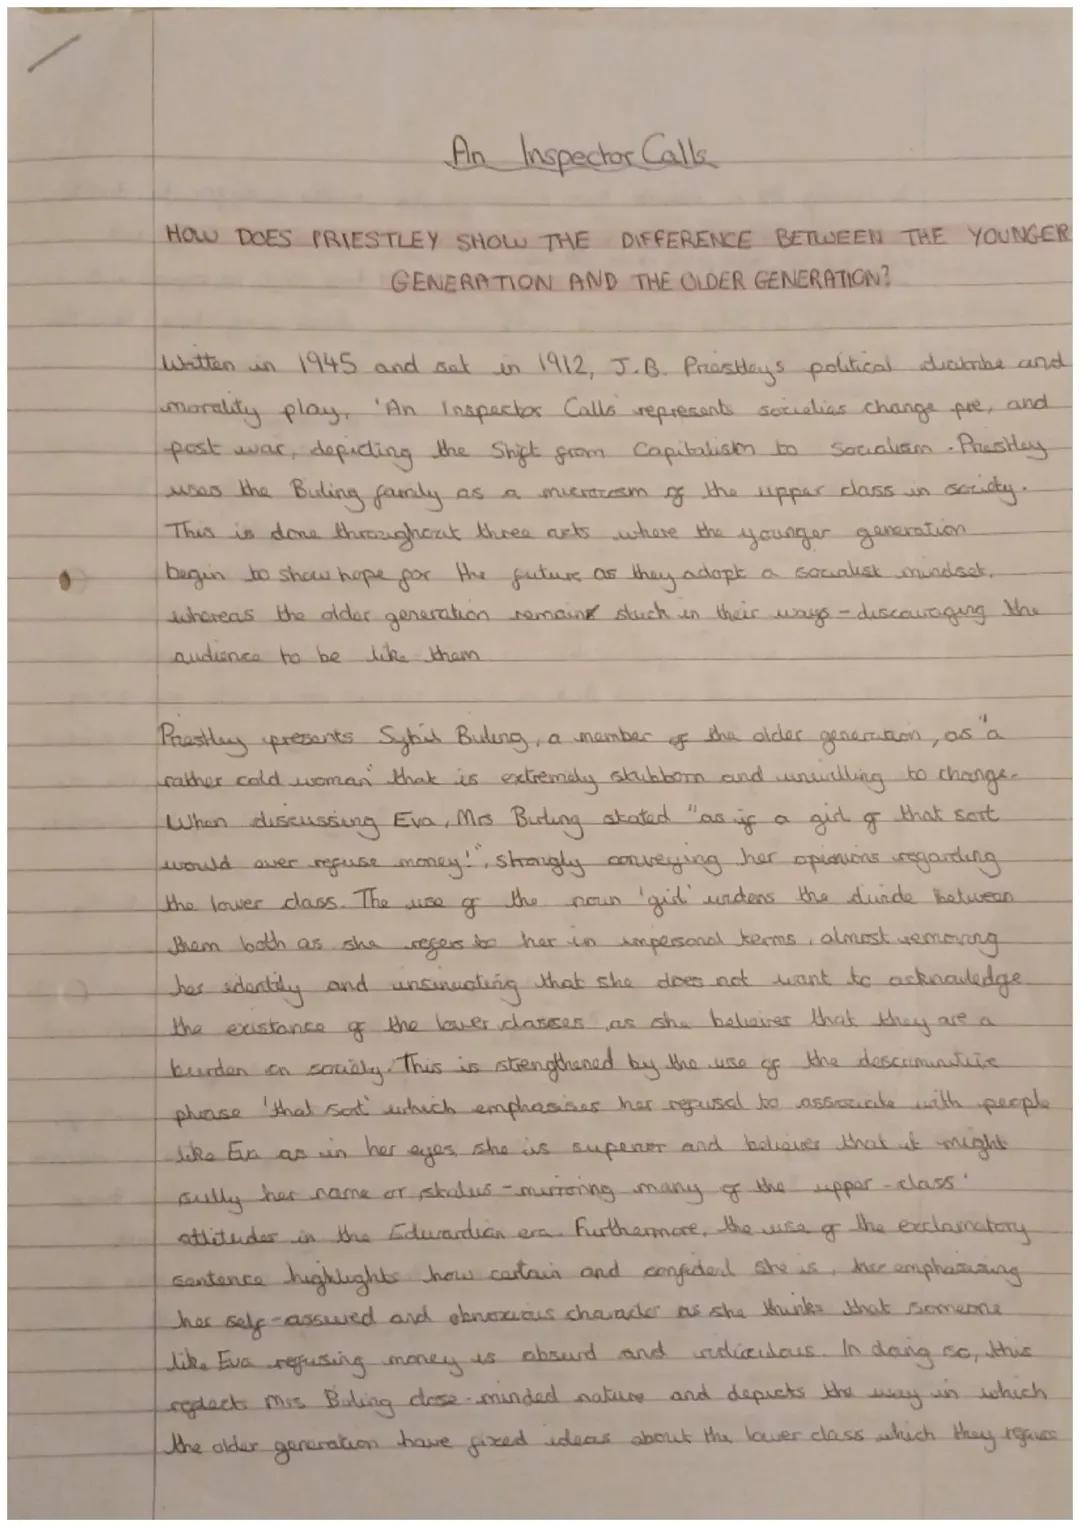 An Inspector Calls
HOW DOES PRIESTLEY SHOW THE DIFFERENCE BETWEEN THE YOUNGER
GENERATION AND THE OLDER GENERATION?
Written in 1945 and set in 1912, J.B. Priestley's political diatribe and
morality play, 'An Inspector Calls represents societies change pre, and
post war, depicting the shift from Capitalism to Socialism. Priestley
uses the Birling family as a microcosm of the upper class in society.
This is done throughout three acts where the younger generation
begin to show hope for the future as they adopt a socialist mindset,
whereas the older generation remains stuck in their ways - discouraging the
audience to be like them
Priestley presents Sybil Birling, a member of the older generation, as "a
rather cold woman" that is extremely stubborn and unwilling to change.
When discussing Eva, Mrs Birling stated "as if a girl of that sort
would ever refuse money!", strongly conveying her opinions regarding
the lower class. The use of the noun 'girl' widens the divide between
them both as she refers to her in impersonal terms, almost removing
her identity and unsinuating that she does not want to acknowledge
the existance of the lower classes as she believes that they are a
burden on society. This is strengthened by the use of the
phrase 'that sort' which emphasises her refusal to associate with people
like Eva as in her eyes she is superior and believes that it might
sully her name or status - mirroring many of the upper-class'
attitudes in the Edwardian era. Furthermore, the use of the exclamatory
sentence highlights how certain and confident she is, emphasising
her self-assured and obnoxious character as she thinks that someone
like Eva refusing money is absurd and ridiculous. In doing so, this
reflects Mrs Birling close-minded nature and depicts the way in which
the older generation have fixed ideas about the lower class which they refuse